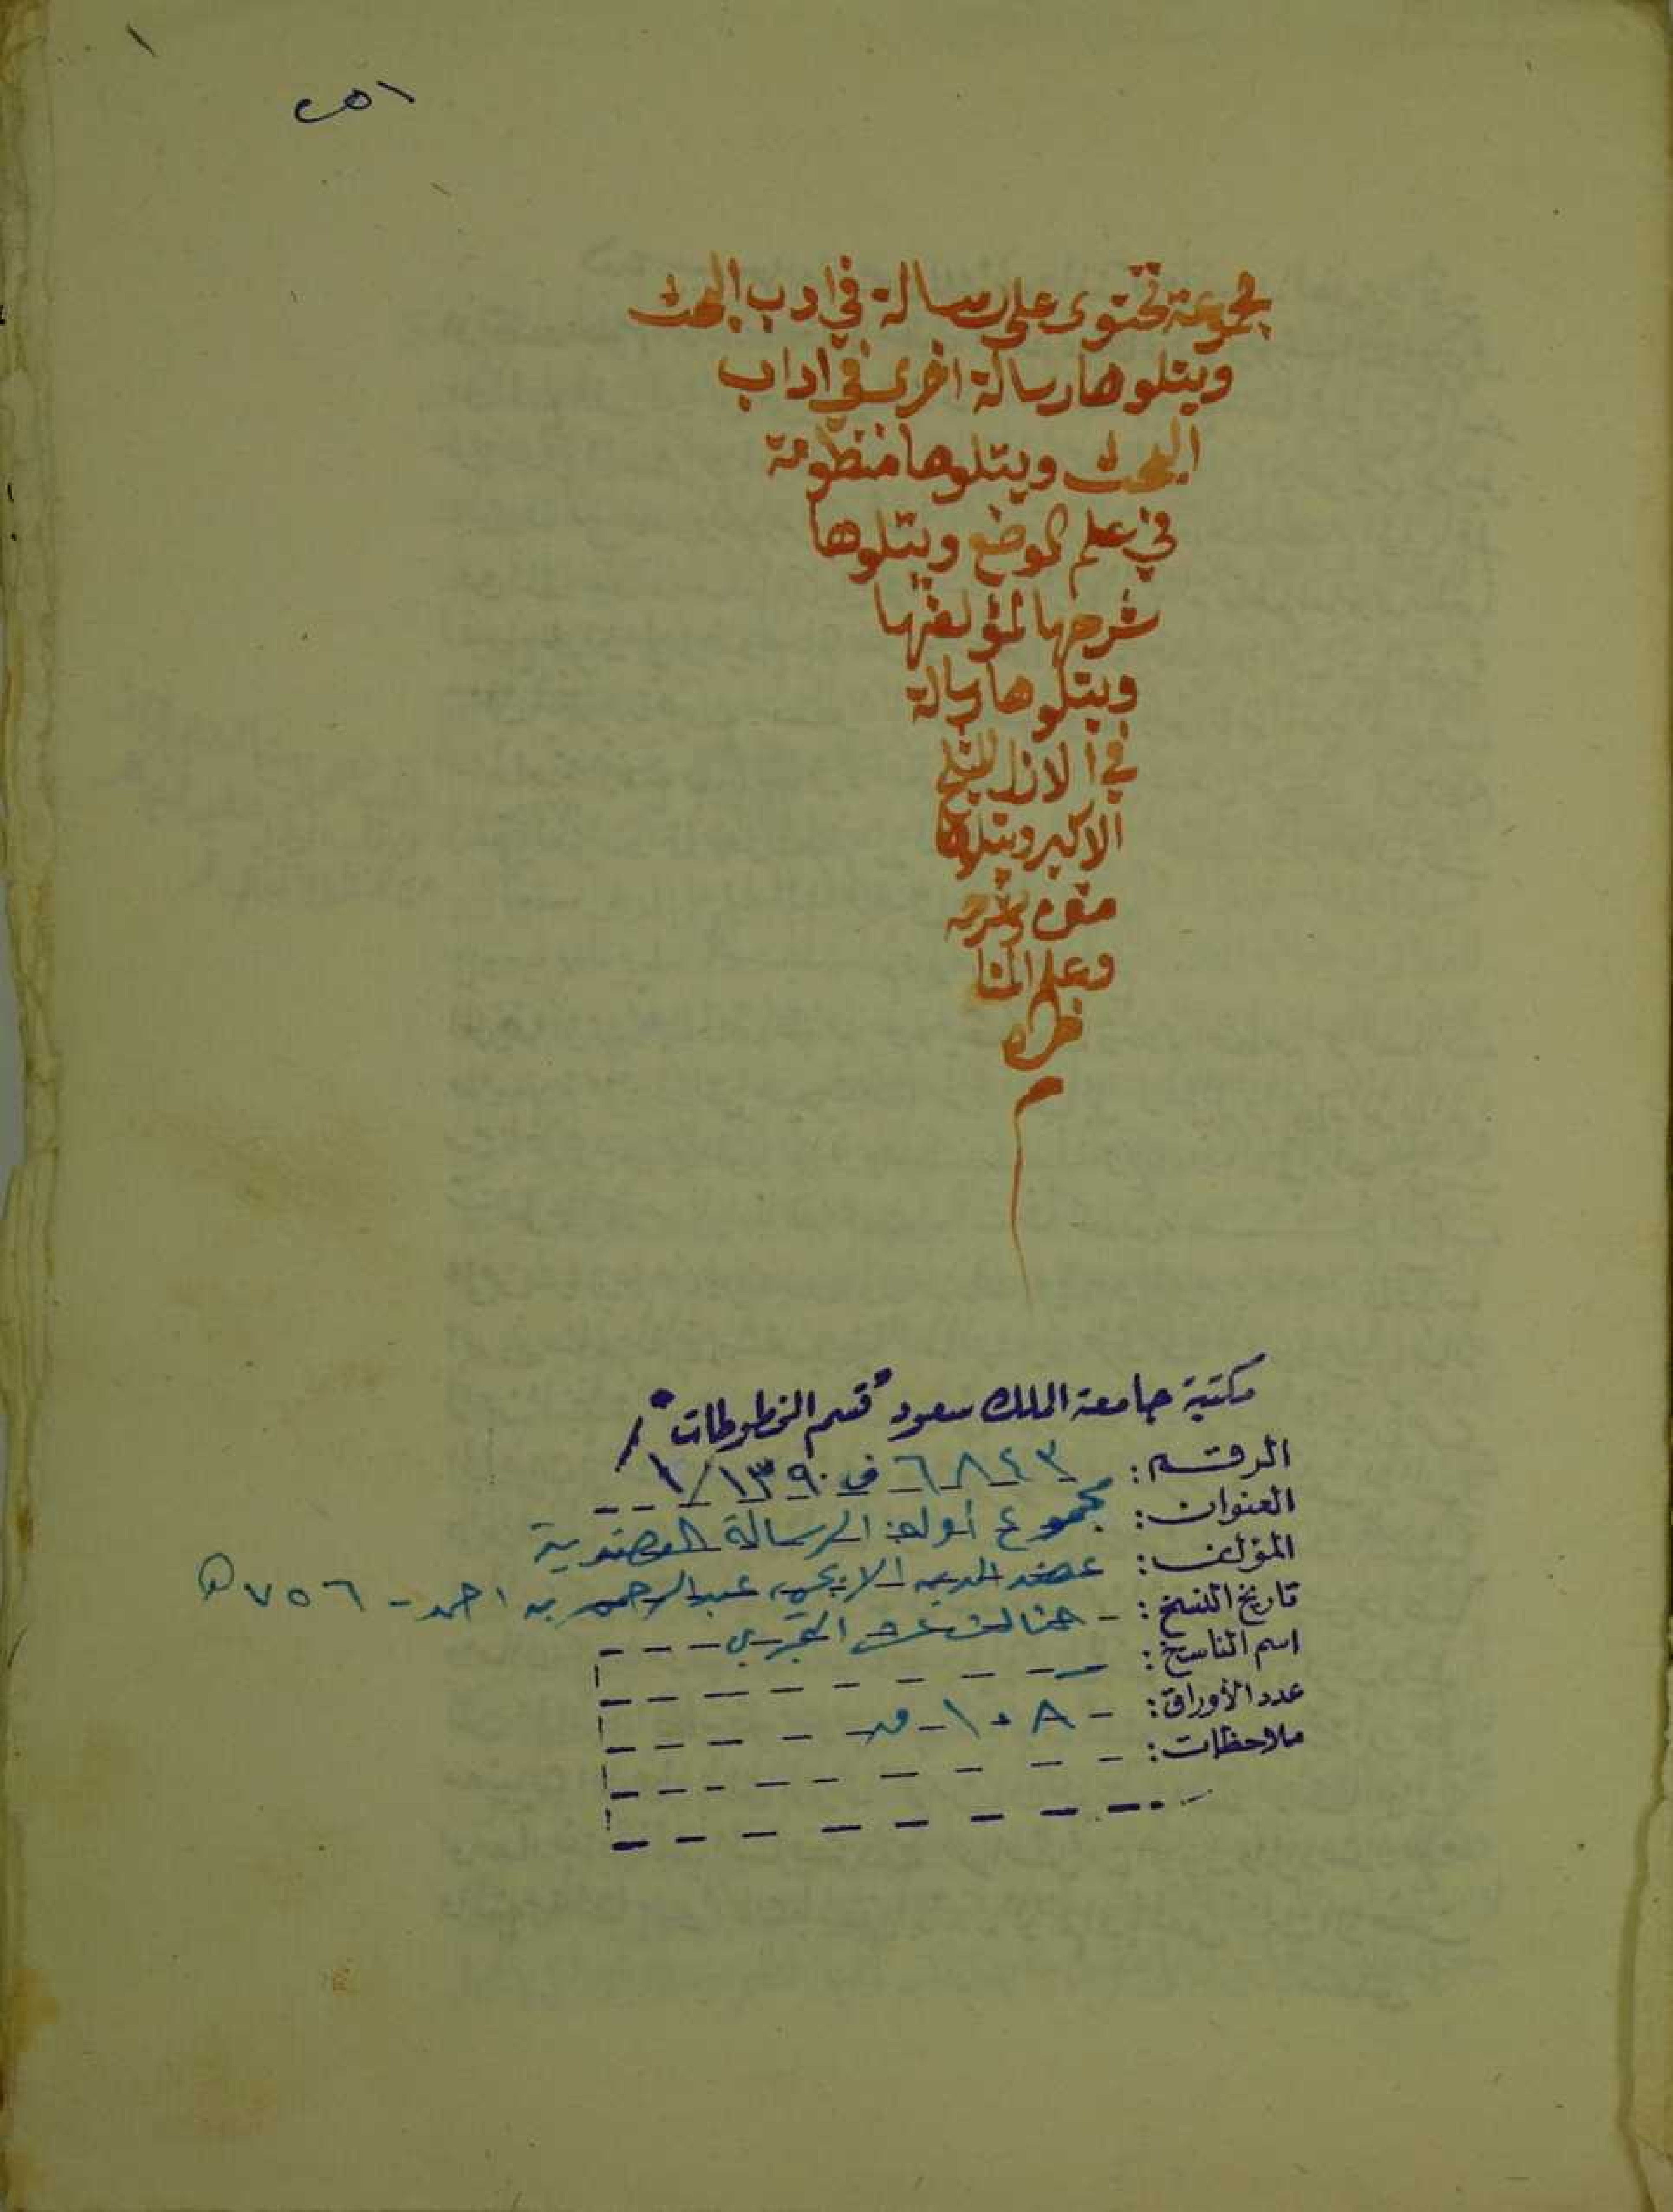 ١
مجموعة تحتوى على رسالة في ادب البحث
ويتلوها رسالة اخرى في اداب
البحث ويتلوها منظومة
في علم الوضع ويتلوها
شرحها لمؤلفها
ويتلوها رسالة
في الازل للشيخ
الاكبر ويتلوها
وعلم المنا
ظره
م
مكتبة جامعة الملك سعود "قسم المخطوطات"
الرقم: ٦٨٤٣ ف ١/١٣٩٠
العنوان: مجموع أوله: الرسالة العضدية
المؤلف: عضد الدين الايجي، عبد الرحمن بن احمد - ٧٥٦ ه
تاريخ النسخ: الثالث عشر الهجري
اسم الناسخ:
عدد الأوراق: ١٠٨ ق
ملاحظات: